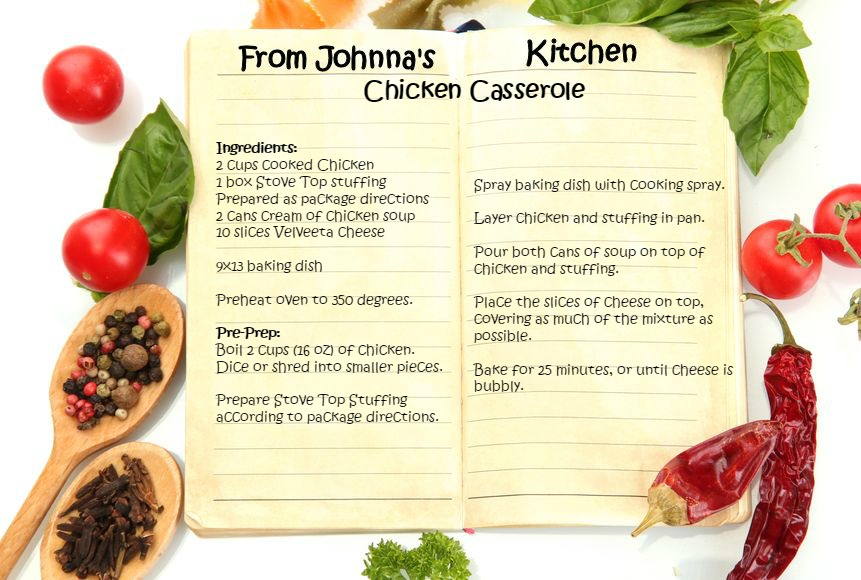 From Johnna's Kitchen
Chicken Casserole
Ingredients:
2 Cups Cooked Chicken
1 box Stove Top stuffing
Prepared as package directions
2 Cans Cream of Chicken soup
10 slices Velveeta Cheese
9x13 baking dish
Preheat oven to 350 degrees.
Pre-Prep:
Boil 2 Cups (16 oz) of Chicken.
Dice or shred into smaller pieces.
Prepare Stove Top Stuffing
according to package directions.
Spray baking dish with Cooking spray.
Layer chicken and stuffing in pan.
Pour both Cans of soup on top of
Chicken and stuffing.
Place the slices of Cheese on top,
Covering as much of the mixture as
possible.
Bake for 25 minutes, or until Cheese is
bubbly.